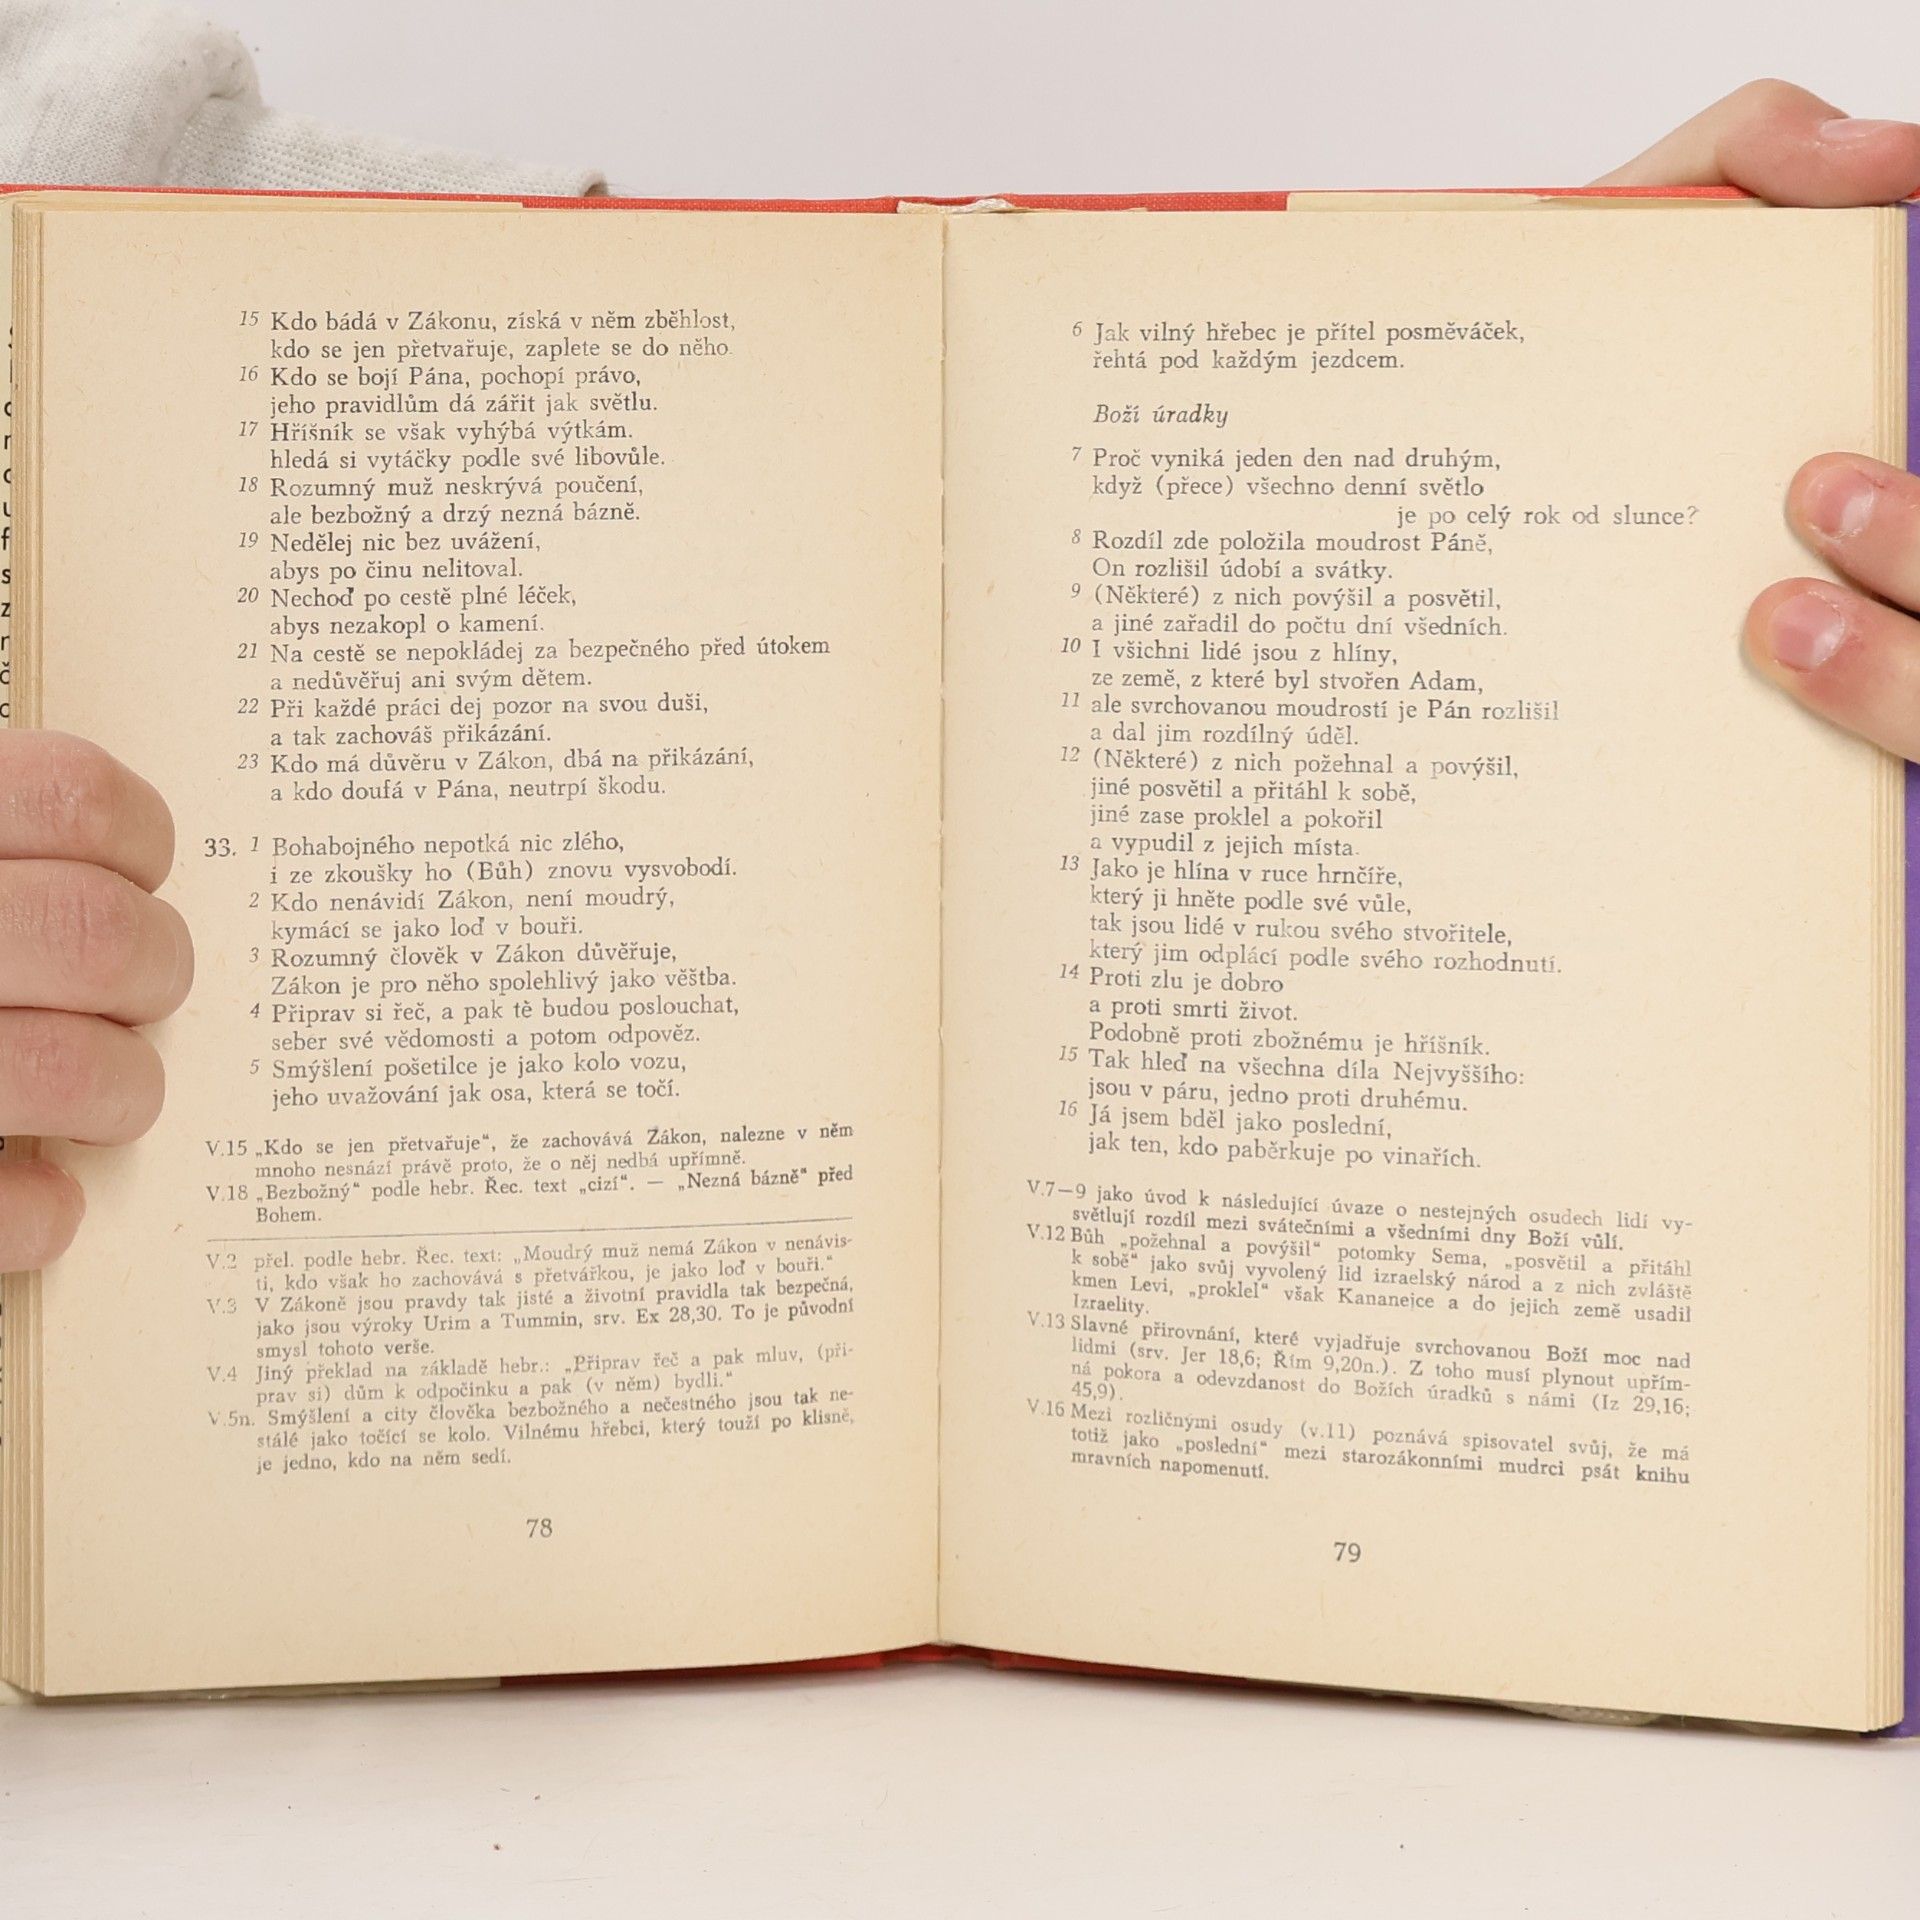 15 Kdo bádá v Zákonu, získá v něm zběhlost,
kdo se jen přetvařuje, zaplete se do něho.
16 Kdo se bojí Pána, pochopí právo,
jeho pravidlům dá zářit jak světlu.
17 Hříšník se však vyhýbá výtkám.
hledá si vytáčky podle své libovůle.
18 Rozumný muž neskrývá poučení,
ale bezbožný a drzý nezná bázně.
19 Nedělej nic bez uvážení,
abys po činu nelitoval.
20 Nechoď po cestě plné léček,
abys nezakopl o kamení.
21 Na cestě se nepokládej za bezpečného před útokem
a nedůvěřuj ani svým dětem.
22 Při každé práci dej pozor na svou duši,
a tak zachováš přikázání.
23 Kdo má důvěru v Zákon, dbá na přikázání,
a kdo doufá v Pána, neutrpí škodu.
33. 1 Bohabojného nepotká nic zlého,
i ze zkoušky ho (Bůh) znovu vysvobodí.
2 Kdo nenávidí Zákon, není moudrý,
kymácí se jako loď v bouři.
3 Rozumný člověk v Zákon důvěřuje,
Zákon je pro něho spolehlivý jako věštba.
4 Připrav si řeč, a pak tě budou poslouchat,
seber své vědomosti a potom odpověz.
5 Smýšlení pošetilce je jako kolo vozu,
jeho uvažování jak osa, která se točí.
V.15 „Kdo se jen přetvařuje“, že zachovává Zákon, nalezne v něm
mnoho nesnází právě proto, že o něj nedbá upřímně.
V.18 „Bezbožný“ podle hebr. Řec. text „cizí“. — „Nezná bázně“ před
Bohem.
V.2 přel. podle hebr. Řec. text: „Moudrý muž nemá Zákon v nenávis-
ti, kdo však ho zachovává s přetvářkou, je jako loď v bouři.“
V.3 V Zákoně jsou pravdy tak jisté a životní pravidla tak bezpečná,
jako jsou výroky Urim a Tummin, srv. Ex 28,30. To je původní
smysl tohoto verše.
V.4 Jiný překlad na základě hebr.: „Připrav řeč a pak mluv, (při-
prav si) dům k odpočinku a pak (v něm) bydli.“
V.5n. Smýšlení a city člověka bezbožného a nečestného jsou tak ne-
stálé jako točící se kolo. Vilnému hřebci, který touží po klisně,
je jedno, kdo na něm sedí.
78
6 Jak vilný hřebec je přítel posměváček,
řehtá pod každým jezdcem.
Boží úradky
7 Proč vyniká jeden den nad druhým,
když (přece) všechno denní světlo
je po celý rok od slunce?
8 Rozdíl zde položila moudrost Páně,
On rozlišil údobí a svátky.
9 (Některé) z nich povýšil a posvětil,
a jiné zařadil do počtu dní všedních.
10 I všichni lidé jsou z hlíny,
ze země, z které byl stvořen Adam,
11 ale svrchovanou moudrostí je Pán rozlišil
a dal jim rozdílný úděl.
12 (Některé) z nich požehnal a povýšil,
jiné posvětil a přitáhl k sobě,
jiné zase proklel a pokořil
a vypudil z jejich místa.
13 Jako je hlína v ruce hrnčíře,
který ji hněte podle své vůle,
tak jsou lidé v rukou svého stvořitele,
který jim odplácí podle svého rozhodnutí.
14 Proti zlu je dobro
a proti smrti život.
Podobně proti zbožnému je hříšník.
15 Tak hleď na všechna díla Nejvyššího:
jsou v páru, jedno proti druhému.
16 Já jsem bděl jako poslední,
jak ten, kdo paběrkuje po vinařích.
V.7—9 jako úvod k následující úvaze o nestejných osudech lidí vy-
světlují rozdíl mezi svátečními a všedními dny Boží vůlí.
V.12 Bůh „požehnal a povýšil“ potomky Sema, „posvětil a přitáhl
k sobě“ jako svůj vyvolený lid izraelský národ a z nich zvláště
kmen Levi, „proklel“ však Kananejce a do jejich země usadil
Izraelity.
V.13 Slavné přirovnání, které vyjadřuje svrchovanou Boží moc nad
lidmi (srv. Jer 18,6; Řím 9,20n.). Z toho musí plynout upřím-
ná pokora a odevzdanost do Božích úradků s námi (Iz 29,16;
45,9).
V.16 Mezi rozličnými osudy (v.11) poznává spisovatel svůj, že má
totiž jako „poslední“ mezi starozákonními mudrci psát knihu
mravních napomenutí.
79